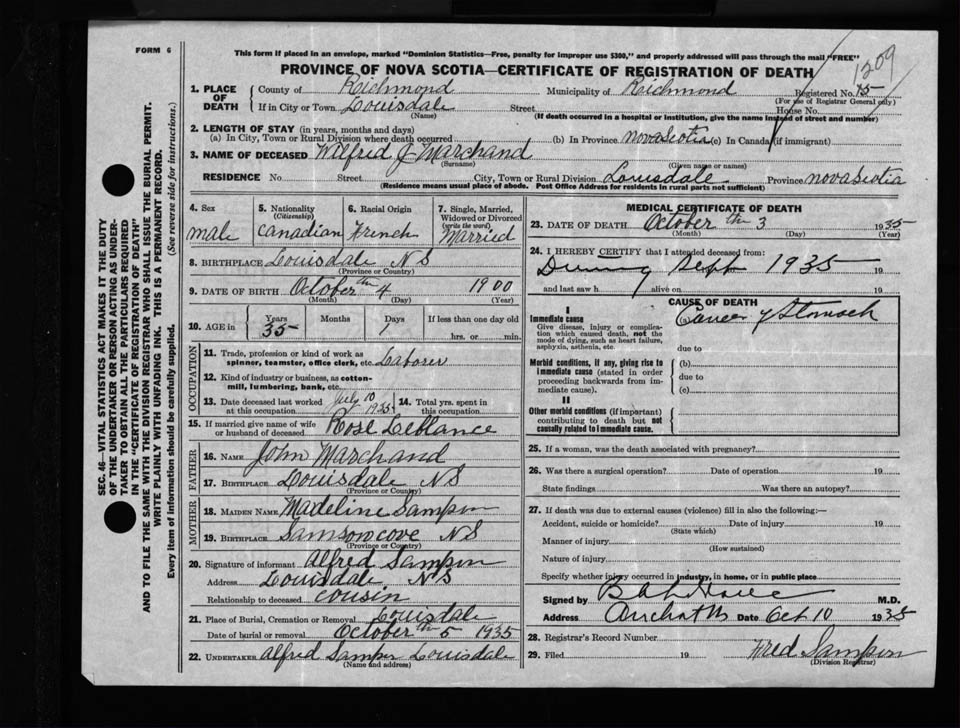 FORM 6
This form if placed in an envelope, marked "Dominion Statistics—Free, penalty for improper use $300," and properly addressed will pass through the mail "FREE"
1209
PROVINCE OF NOVA SCOTIA—CERTIFICATE OF REGISTRATION OF DEATH
1. PLACE OF DEATH
County of Richmond Municipality of Richmond Registered No. 15
(For use of Registrar General only)
If in City or Town Louisdale Street House No.
(Name) (If death occurred in a hospital or institution, give the name instead of street and number)
2. LENGTH OF STAY (in years, months and days)
(a) In City, Town or Rural Division where death occurred (b) In Province Nova Scotia (c) In Canada (if immigrant)
3. NAME OF DECEASED Wilfred J Marchand
(Surname) (Given name or names)
RESIDENCE No. Street City, Town or Rural Division Louisdale Province Nova Scotia
(Residence means usual place of abode. Post Office Address for residents in rural parts not sufficient)
4. Sex
male
5. Nationality
(Citizenship)
Canadian
6. Racial Origin
French
7. Single, Married, Widowed or Divorced
(write the word)
Married
8. BIRTHPLACE Louisdale NS
(Province or Country)
9. DATE OF BIRTH October th 4 1900
(Month) (Day) (Year)
10. AGE in
Years Months Days If less than one day old
35 1 hrs. or min.
OCCUPATION
11. Trade, profession or kind of work as
spinner, teamster, office clerk, etc. Laborer
12. Kind of industry or business, as cotton-
mill, lumbering, bank, etc.
13. Date deceased last worked at this occupation July 10 1935
14. Total yrs. spent in this occupation
15. If married give name of wife
or husband of deceased Rose Leblance
FATHER
16. NAME John Marchand
17. BIRTHPLACE Louisdale NS
(Province or Country)
MOTHER
18. MAIDEN NAME Madeline Sampson
19. BIRTHPLACE Samsoncove NS
(Province or Country)
20. Signature of informant Alfred Sampson
Address Louisdale NS
Relationship to deceased cousin
21. Place of Burial, Cremation or Removal Louisdale
Date of burial or removal October th 5 1935
22. UNDERTAKER Alfred Sampson Louisdale
(Name and address)
MEDICAL CERTIFICATE OF DEATH
23. DATE OF DEATH October th 3 1935
(Month) (Day) (Year)
24. I HEREBY CERTIFY that I attended deceased from:
During Sept 1935 19
and last saw h alive on 19
CAUSE OF DEATH
I
Immediate cause
Give disease, injury or complica-
tion which caused death, not the
mode of dying, such as heart failure,
asphyxia, asthenia, etc.
(a) Cancer of Stomach
due to
Morbid conditions, if any, giving rise to
immediate cause (stated in order
proceeding backwards from im-
mediate cause).
(b)
due to
(c)
II
Other morbid conditions (if important)
contributing to death but not
causally related to immediate cause.
25. If a woman, was the death associated with pregnancy?
26. Was there a surgical operation? Date of operation 19
State findings Was there an autopsy?
27. If death was due to external causes (violence) fill in also the following:—
Accident, suicide or homicide? Date of injury 19
(State which)
Manner of injury
(How sustained)
Nature of injury
Specify whether injury occurred in industry, in home, or in public place
Signed by M.D.
Address Date Oct 10 1935
28. Registrar's Record Number
29. Filed 19 Fred Sampson
(Division Registrar)
SEC. 46—VITAL STATISTICS ACT MAKES IT THE DUTY
OF THE UNDERTAKER OR PERSON ACTING AS UNDER-
TAKER TO OBTAIN ALL THE PARTICULARS REQUIRED
IN THE "CERTIFICATE OF REGISTRATION OF DEATH"
AND TO FILE THE SAME WITH THE DIVISION REGISTRAR WHO SHALL ISSUE THE BURIAL PERMIT.
WRITE PLAINLY WITH UNFADING INK. THIS IS A PERMANENT RECORD.
Every item of information should be carefully supplied. (See reverse side for instructions.)